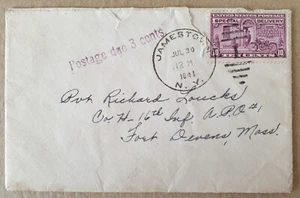 Postage due 3 cents
JAMESTOWN
JUL 20
12 M
1941
N.Y.
UNITED STATES POSTAGE
SPECIAL DELIVERY
10 CENTS 10
Pvt Richard Loucks
Co. H- 16th Inf. A.P.O #1
Fort Devens, Mass.